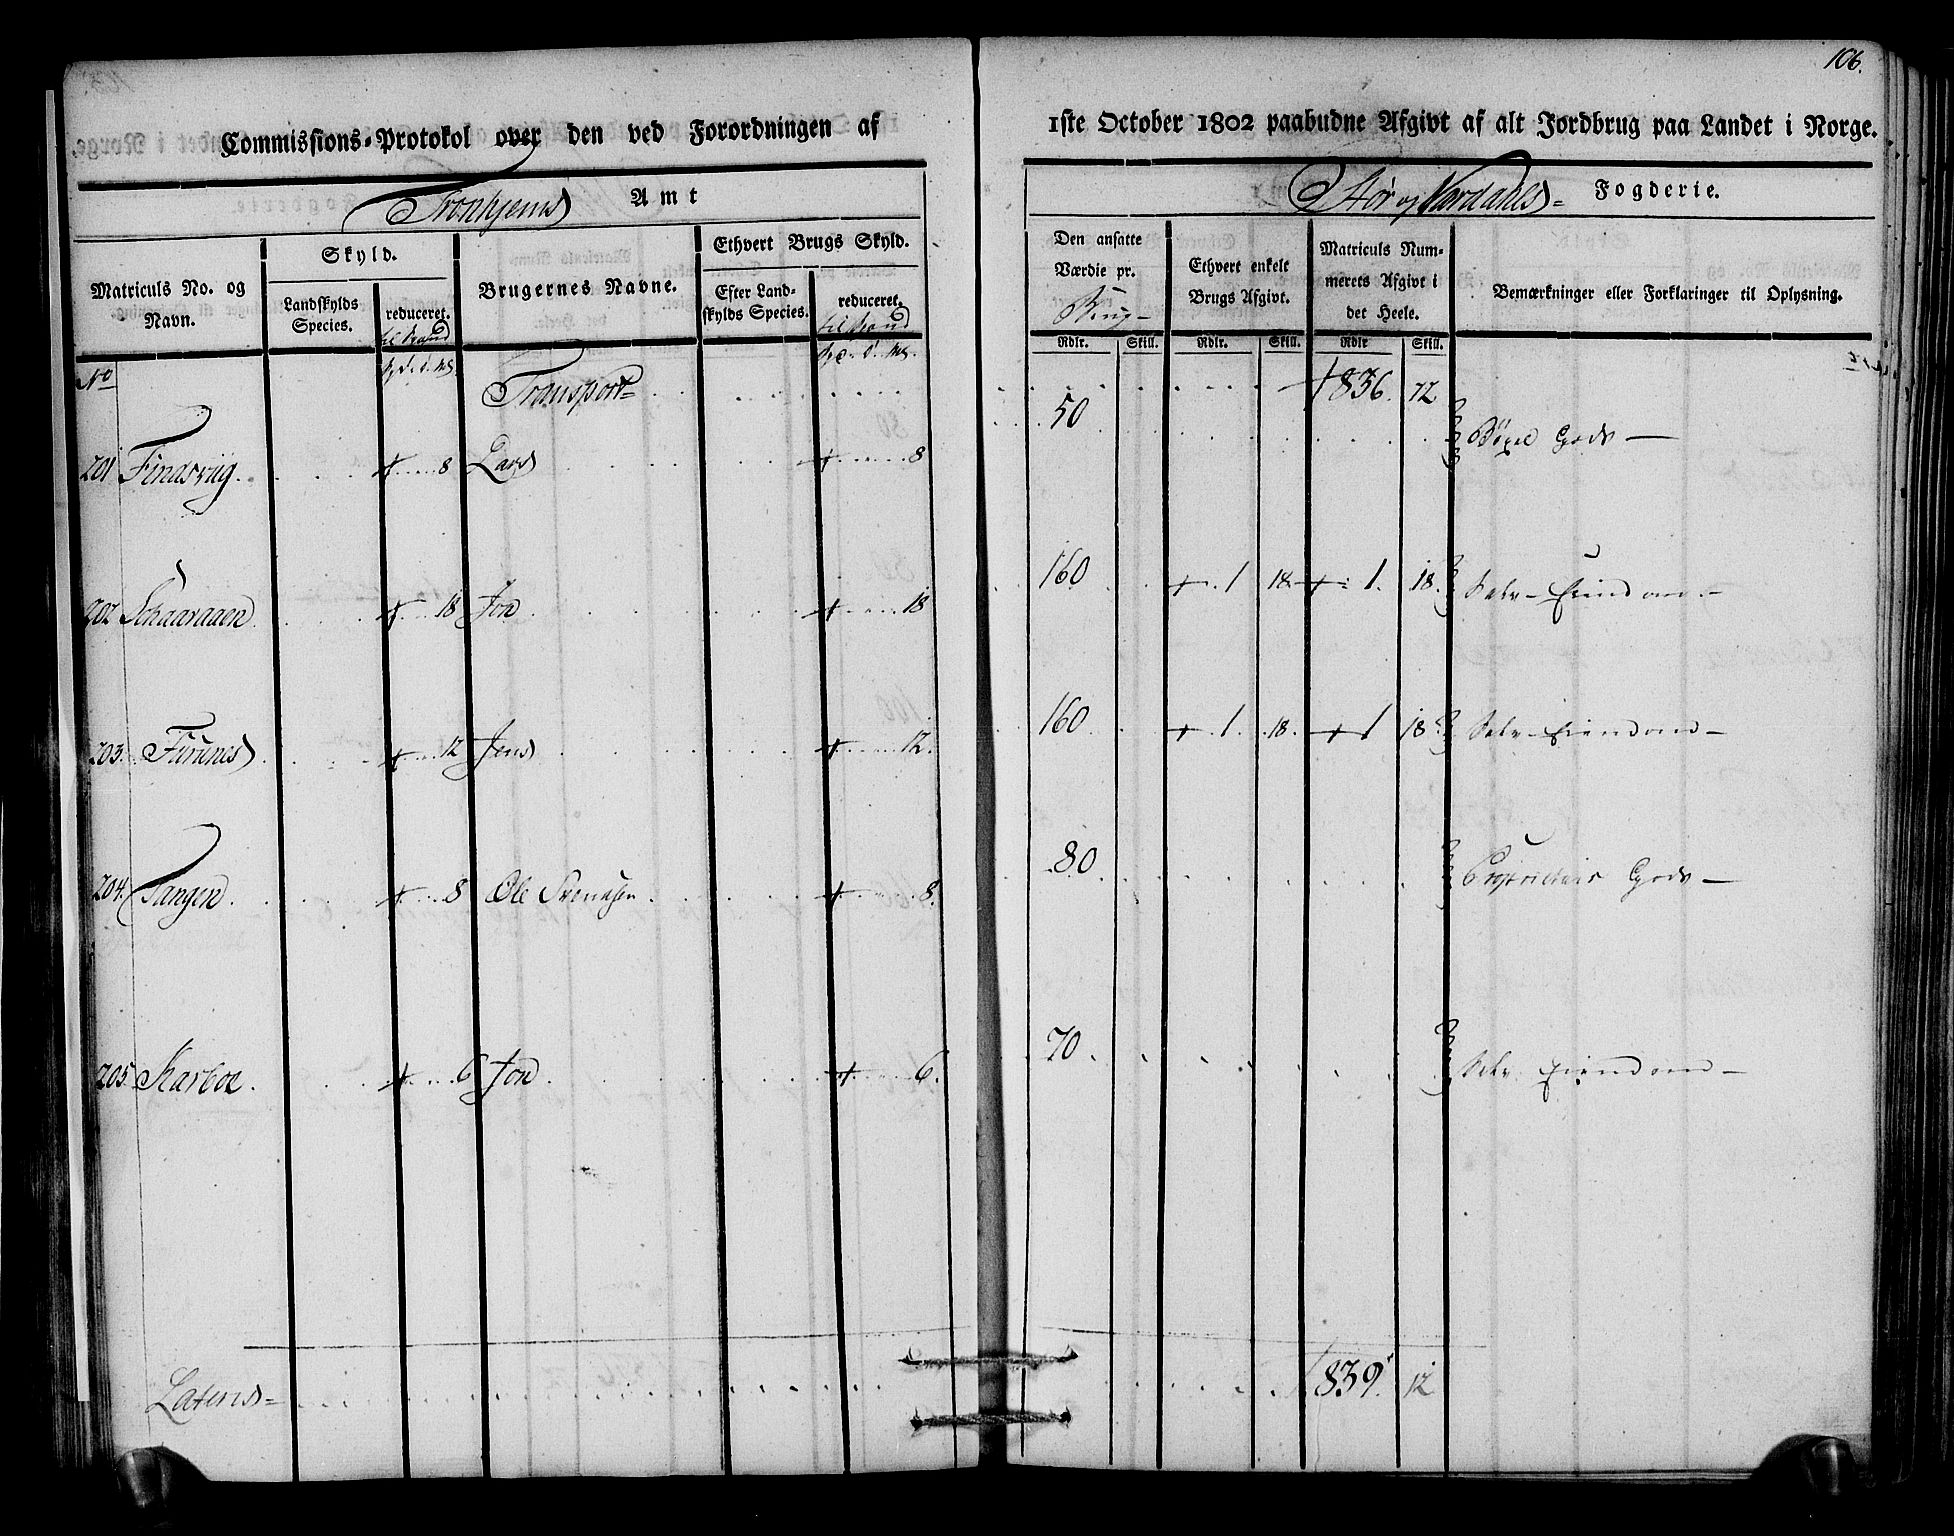 106.
Commissions-Protokol over den ved Forordningen af 1ste October 1802 paabudne Afgivt af alt Jordbrug paa Landet i Norge.
Tronhjems Amt
Stør og Værdahls Fogderie.
Matriculs No. og Navn.
Skyld.
Landskylds Species.
reduceret.
Brugernes Navne.
Ethvert Brugs Skyld.
Efter Landskylds Species.
reduceret.
Den ansatte Værdie pr. Brug
Ethvert enkelt Brugs Afgivt.
Matriculs Nummerets Afgivt i det Heele.
Bemærkninger eller Forklaringer til Oplysning.
Rdlr. Skill. Rdlr. Skill. Rdlr Skill.
No
Transport 836. 72
201 Findsviig 8 Lars 8 50 Böxel Gods
202 Schaaraaen 18 Jon 18 160 1 18 1. 18 Selv Eiendom
203. Furunes 12 Jens 12. 160 1. 18. 1 18 Selv Eiendom
204. Tangen 8 Ole Svendsen 8. 80 Proprietair Gods
205. Karboe 6 Jon 6. 70 Selv Eiendom
Laterus 839. 12